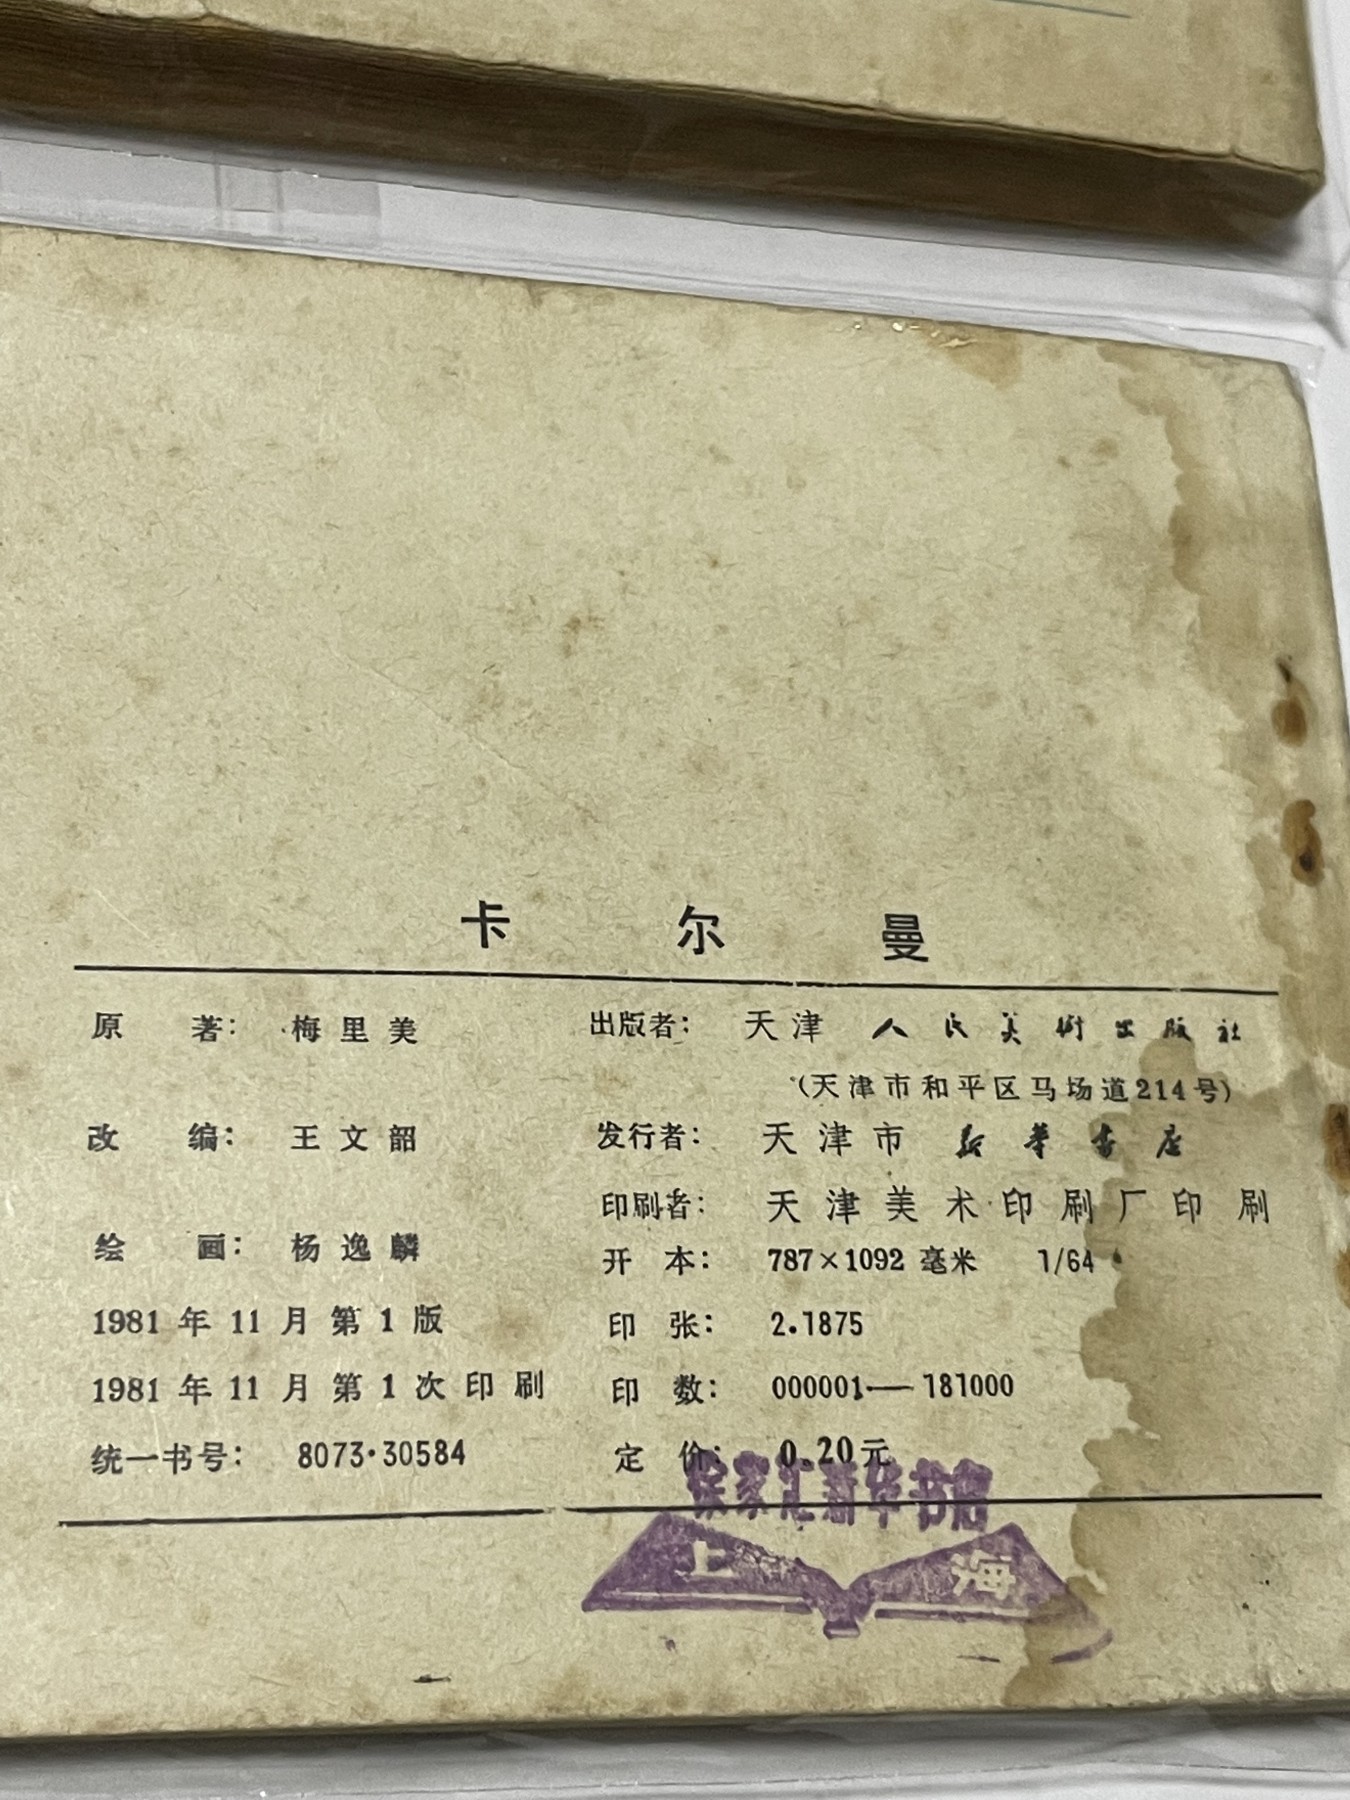 卡尔曼
原 著：梅里美
改 编：王文韶
绘 画：杨逸麟
1981年11月第1版
1981年11月第1次印刷
统一书号：8073·30584
出版者：天津人民美术出版社
（天津市和平区马场道214号）
发行者：天津市新华书店
印刷者：天津美术印刷厂印刷
开 本：787×1092毫米 1/64
印 张：2.1875
印 数：000001—181000
定 价：0.20元
徐家汇新华书店
上海